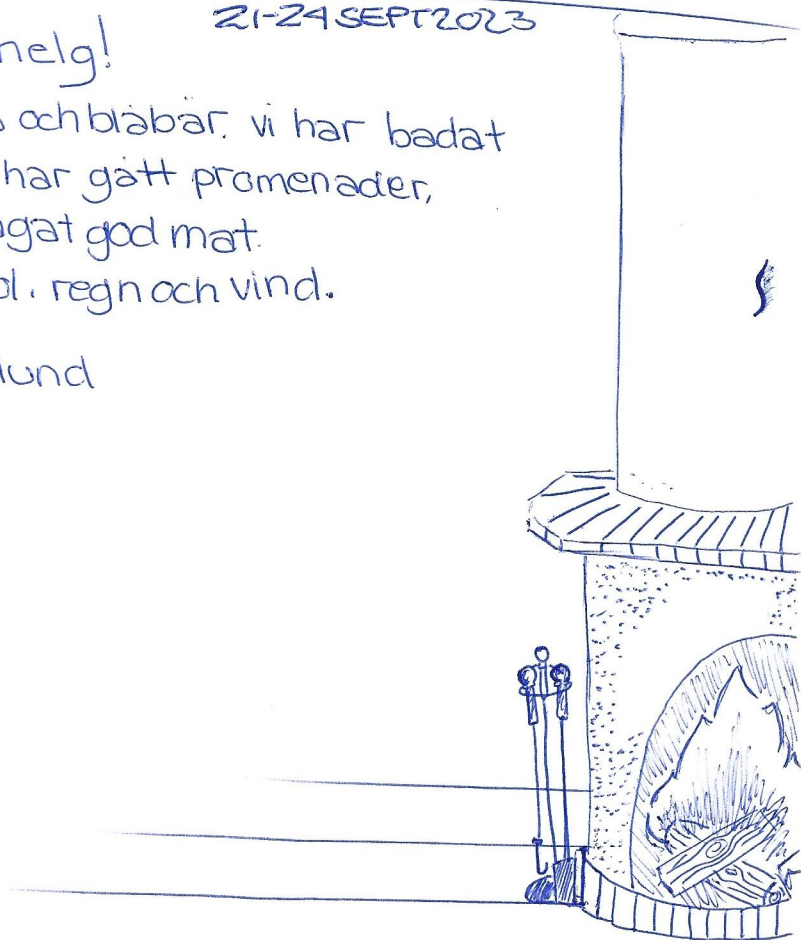 21-24 SEPT 2023
helg!
och blåbär. vi har badat
har gått promenader,
god mat.
regn och vind.
lund